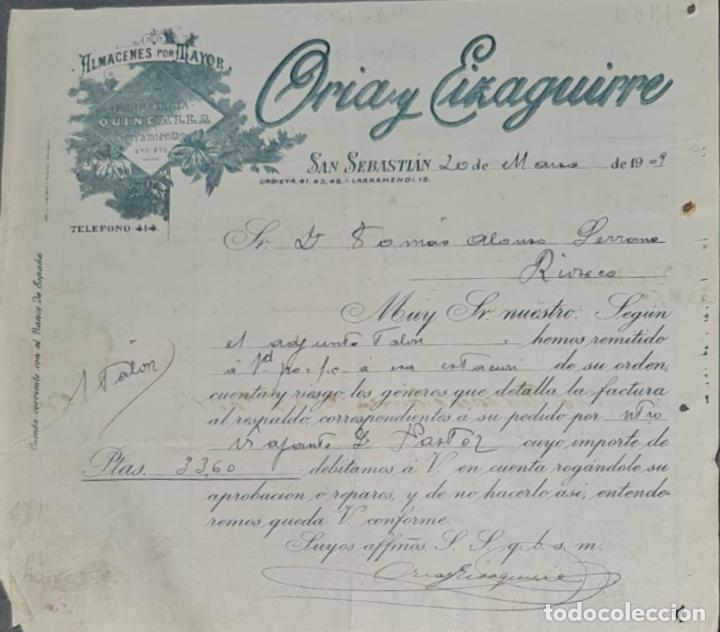 ALMACENES POR MAYOR
FERRETERIA
QUINCALLA
Herramientas
ETC. ETC.
TELEFONO 414.
Oria y Eizaguirre
SAN SEBASTIÁN 20 de Marzo de 1909
URBIETA, 41, 43, 45.-LARRAMENDI, 15.
Sr. D Tomás Alonso Serrano
Rioseco
Muy Sr. nuestro: Según
el adjunto talon, hemos remitido
á Vd por f.c. á esa estacion de su orden,
cuenta y riesgo los géneros que detalla la factura
al respaldo, correspondientes a su pedido por ntro
Viajante D. Pastor cuyo importe de
Ptas. 33,60 debitamos á V. en cuenta rogándole su
aprobación ó reparos, y de no hacerlo así, entende-
remos queda V. conforme.
Suyos affmos. S. S. q. b. s. m.
Oria y Eizaguirre
1 talón
Cuenta corriente con el Banco de España
todocoleccion